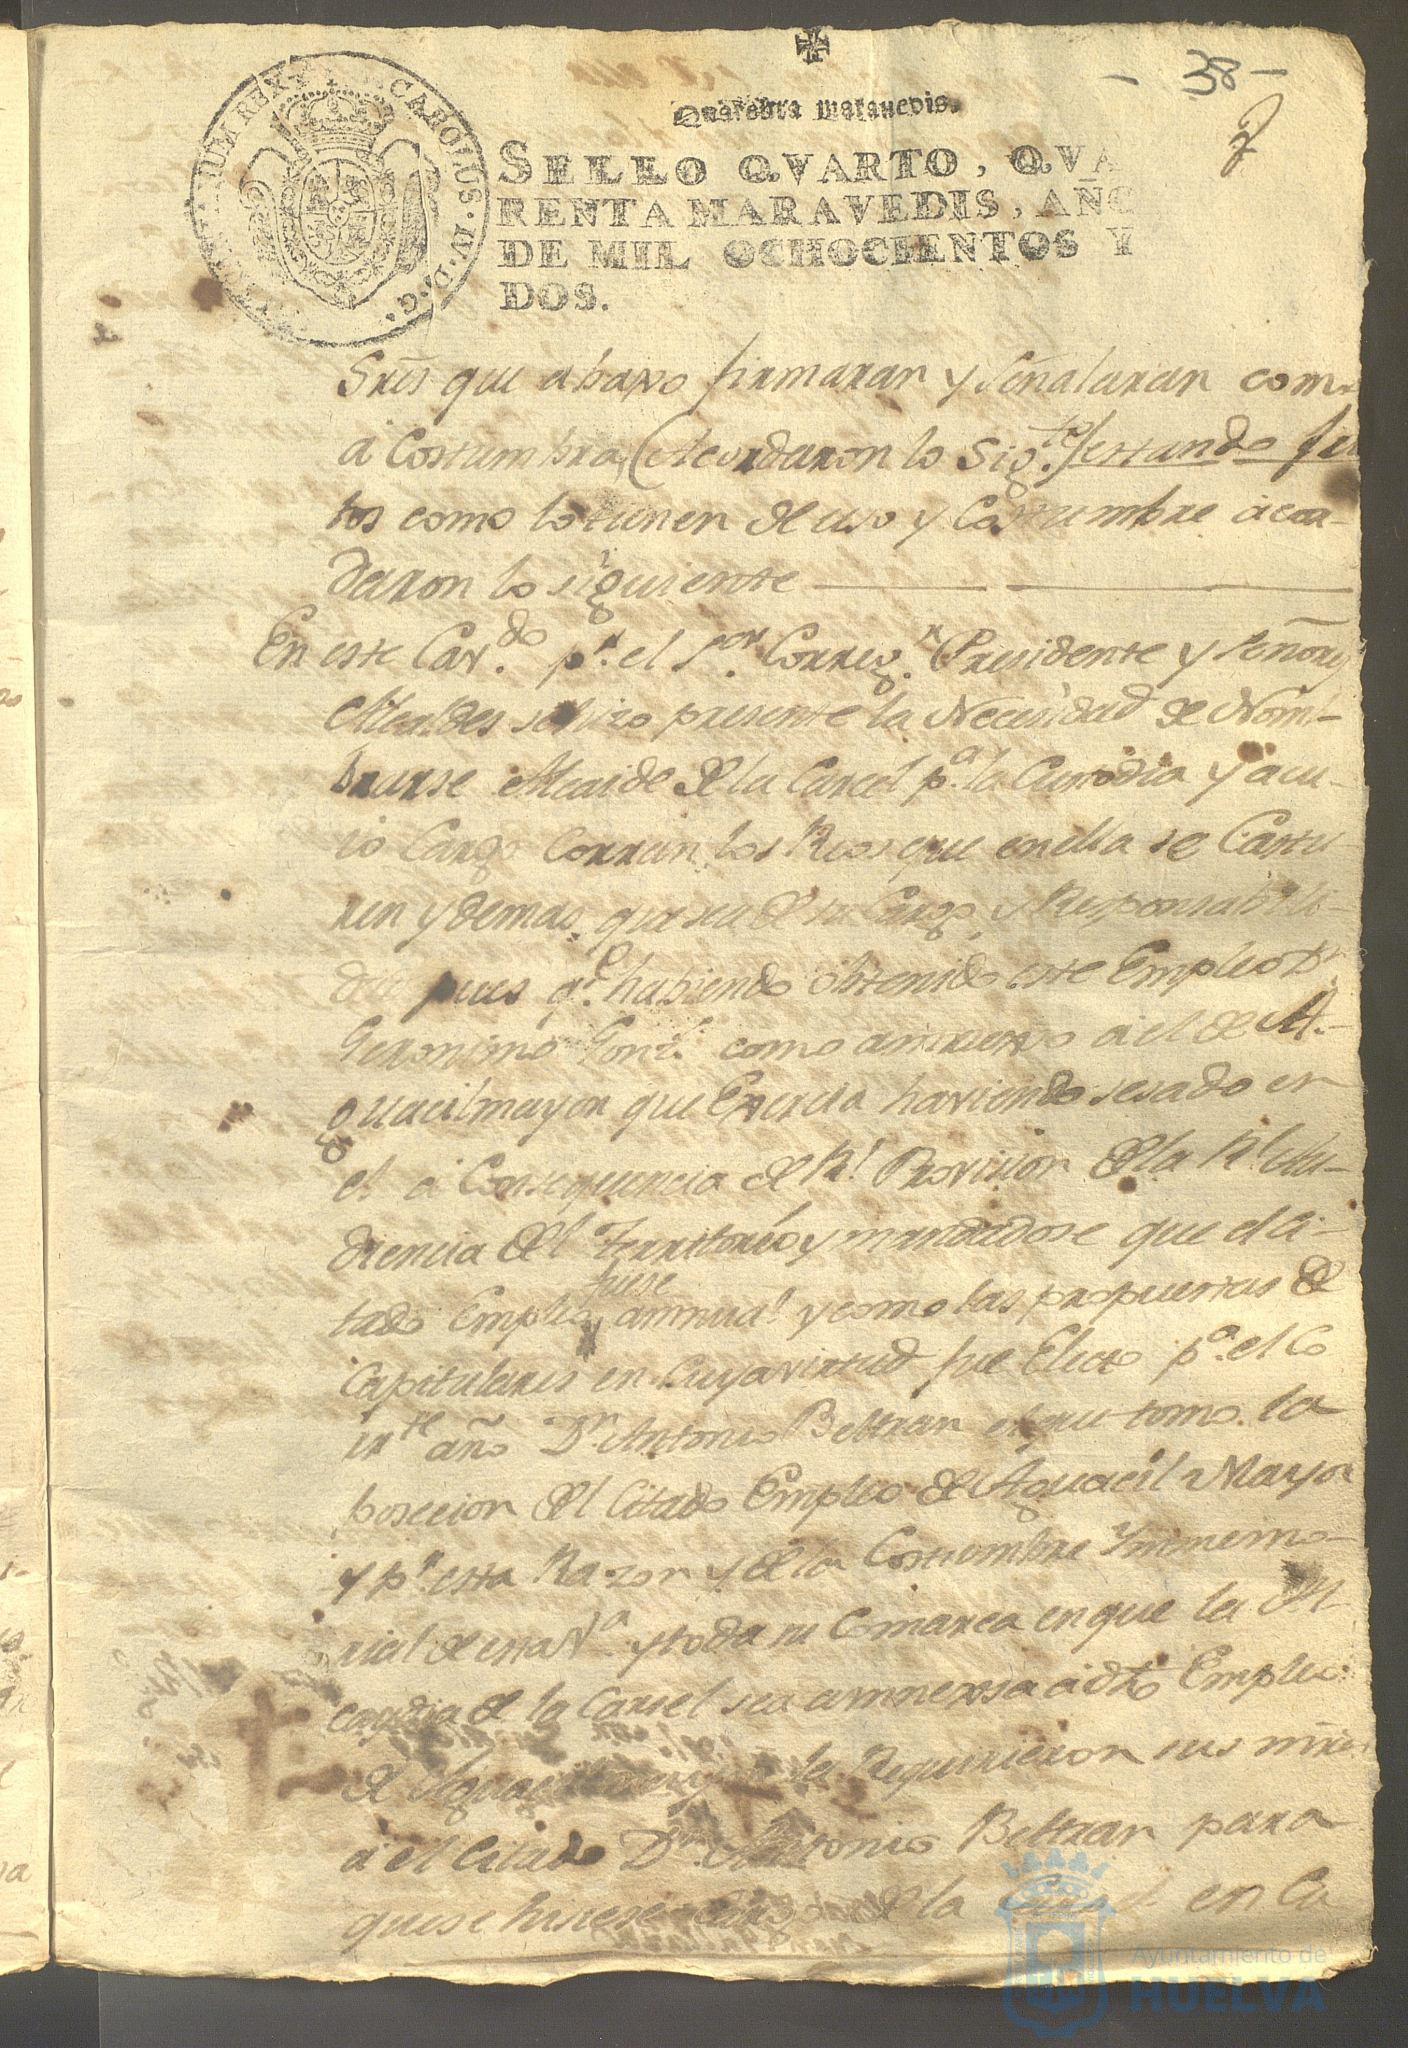 - 38 -
Quarenta marauedis.
SELLO QVARTO, QVA
RENTA MARAVEDIS, AÑO
DE MIL OCHOCIENTOS Y
DOS.
CAROLUS · IV · D · G ·
Sres que abaxo firmaran y señalaran como
â Costumbra, (Acordaron lo Sigte.) estando jun
tos como lo tienen de uso y Costumbre acor-
daron lo siguiente
En este Cavdo. pr. el Sor. Correxr. Presidente y señores
Alcaldes se hizo presente la Necesidad de Nom-
brarse Alcaide de la Carcel pa. la Custodia y a cu-
io Cargo Corran los Reos que en ella se Captu-
ren y demas que sea de su Cargo y Responsabili-
dad pues qe. habiendo obtenido este Empleo Dn.
Geronimo Gonz. como annexso â el de Al-
guacil mayor que Exercia haviendo sesado en
el â Consequencia de Rl. Provision de la Rl. Au-
diencia del Territorio y mandadose que el ci-
tado Empleo fuese annual y como las propuestas de
Capitulares en Cuya virtud fue Electo pa. el Co
irte año Dn. Antonio Beltran el que tomo la
poseccion del Citado Empleo de Aguacil Mayor
y pr. esta Razon y de la Costumbre Ynmemo-
rial de esta Va. y toda su Comarca en que la Al-
caydia de la Carsel sea annexsa â dho Empleo
de Alguacil mayor le Requirieron sus mrds
â el Citado Dn. Antonio Beltran para
que se hiciese Cargo de la Carcel en Ca
Ayuntamiento de
HUELVA